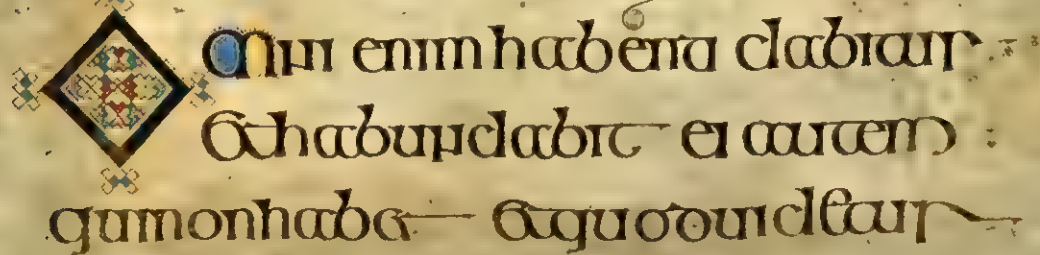 Omni enim habenti dabitur
Ethabundabit ei autem :
quinonhabet Etquoduidetur